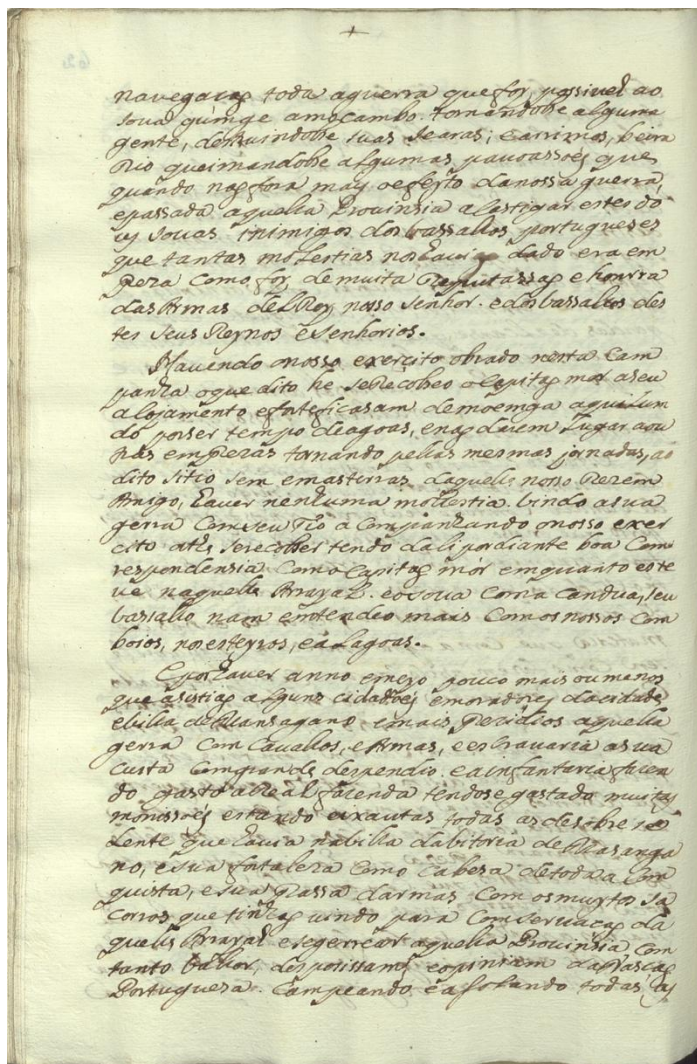 navegacaõ toda aguerra que foy possivel ao
souâ quinge amocambo. tornandolhe alguma
gente, destruindolhe suas searas; earrimos, beira
Rio queimandolhe algumas pavoassoẽs que
quando naõ fora mais oefeyto danossa guerra,
epassada aquella Provinsia aCastigar estes do
us souas inimigos dosbassallos portugueses
que tantas molestias nos hauia dado era em
preza como foy de muita Reputassaõ e honrra
das Armas delRey nosso senhor. edosbassallos des
tes seus Reynos esenhorios.
Hauendo onosso exercito obrado nesta Cam
panha oque dito he seRecolheo oCapitaõ mor aseu
alojamento eforteficasam demoemga aquilum
do porser tempo deagoas, enaõ darem Lugar aou
tras emprezas tornando pellas mesmas jornadas, ao
dito sitio sem emasterras daquelle nosso Rezem
Amigo, hauer nenhuma molestia. vindo asua
gerra Comseu Tio aCompanhando onosso exer
cito athe serecolher tendo dali pordiante boa Com
respondensia Como Capitaõ mór emquanto este
ue naquelle Arrayal. eosoua Coma Candua, seu
bassallo nam emtendeo mais Comos nossos Com
boios, nos esteyros, eaLagoas.
Epor hauer anno emeyo pouco mais oumenos
que asistiaõ alguns cidadoẽs emoradores dacidade
ebilla deMansagano emais Prezidios aquella
gerra Com Cavallos, eArmas, eescravaria asua
custa Comgrande despendio. eainfantaria fazen
do gasto aReal fazenda tendose gastado muitas
monissoẽs estando exautas todas asdesobre
Lente que hauia nabilla dabitoria deMasanga
no, esua fortaleza como Cabesa detoda a Com
quista, esua prassa darmas Com osmuytos so
corros que tinhaõ vindo para Comservacaõ da
quelle Arrayal esegerrear aquella Provinsia Com
tanto ballor, desposissam, eopiniam danasçaõ
Portuguesa. Campeando easolando todas as